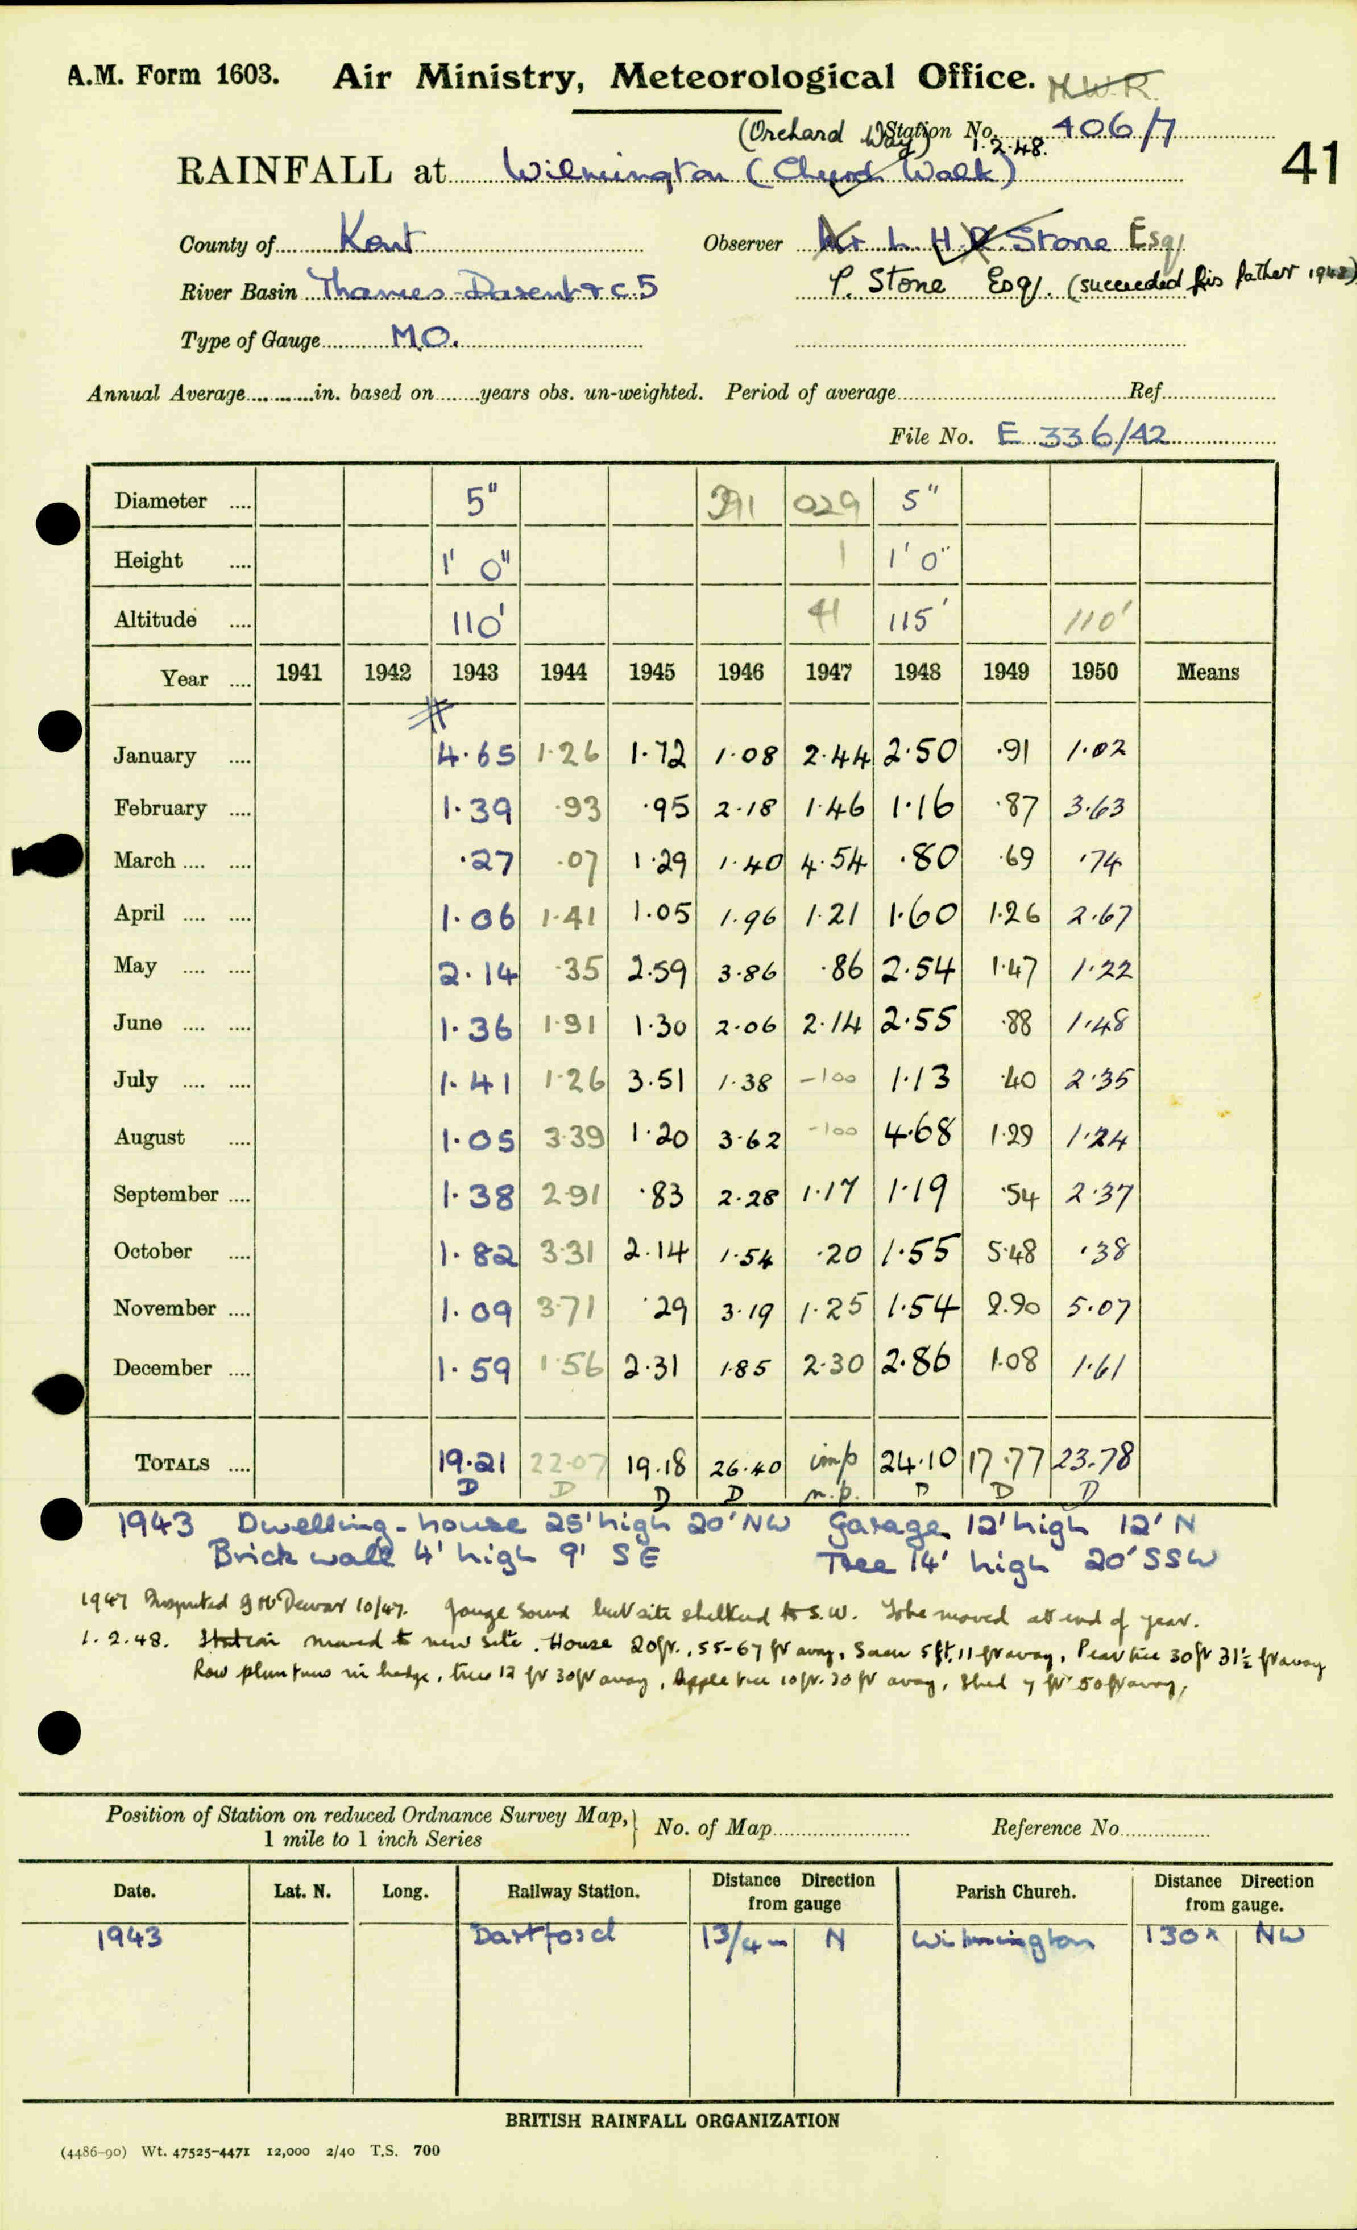 A.M. Form 1603. Air Ministry, Meteorological Office. M.W.R.
(Orchard Way) Station No. 406/7
1.2.48.
RAINFALL at Wilmington (Church Walk) 41
County of Kent Observer Mr L. H. R. Stone Esq
River Basin Thames-Darent & C5 P. Stone Esq. (succeeded his father 1948)
Type of Gauge M.O.
Annual Average in. based on years obs. un-weighted. Period of average Ref.
File No. E 336/42
Diameter 5" 391 029 5"
Height 1' 0" 1 1' 0"
Altitude 110' 41 115' 110'
Year 1941 1942 1943 1944 1945 1946 1947 1948 1949 1950 Means
January 4.65 1.26 1.72 1.08 2.44 2.50 .91 1.02
February 1.39 .93 .95 2.18 1.46 1.16 .87 3.63
March .27 .07 1.29 1.40 4.54 .80 .69 .74
April 1.06 1.41 1.05 1.96 1.21 1.60 1.26 2.67
May 2.14 .35 2.59 3.86 .86 2.54 1.47 1.22
June 1.36 1.91 1.30 2.06 2.14 2.55 .88 1.48
July 1.41 1.26 3.51 1.38 -100 1.13 .40 2.35
August 1.05 3.39 1.20 3.62 -100 4.68 1.29 1.24
September 1.38 2.91 .83 2.28 1.17 1.19 .54 2.37
October 1.82 3.31 2.14 1.54 .20 1.55 5.48 .38
November 1.09 3.71 .29 3.19 1.25 1.54 2.90 5.07
December 1.59 1.56 2.31 1.85 2.30 2.86 1.08 1.61
TOTALS 19.21 22.07 19.18 26.40 imp 24.10 17.77 23.78
D D D D n.p. D D D
1943 Dwelling-house 25' high 20' NW Garage 12' high 12' N
Brick wall 4' high 9' SE Tree 14' high 20' SSW
1947 Inspected Dewar 10/47. Gauge sound but site sheltered to S.W. To be moved at end of year.
1.2.48. Station moved to new site. House 20 ft., 55-67 ft away, 5 ft, 11 ft away, Pear tree 30 ft 31½ ft away
Row plum trees in hedge, trees 12 ft 30 ft away, Apple tree 10 ft. 20 ft away, Shed 7 ft 50 ft away,
Position of Station on reduced Ordnance Survey Map, No. of Map Reference No.
1 mile to 1 inch Series
Date. Lat. N. Long. Railway Station. Distance Direction from gauge Parish Church. Distance Direction from gauge.
1943 Dartford 1 3/4 m N Wilmington 130x NW
BRITISH RAINFALL ORGANIZATION
(4486-90) Wt. 47525-4471 12,000 2/40 T.S. 700